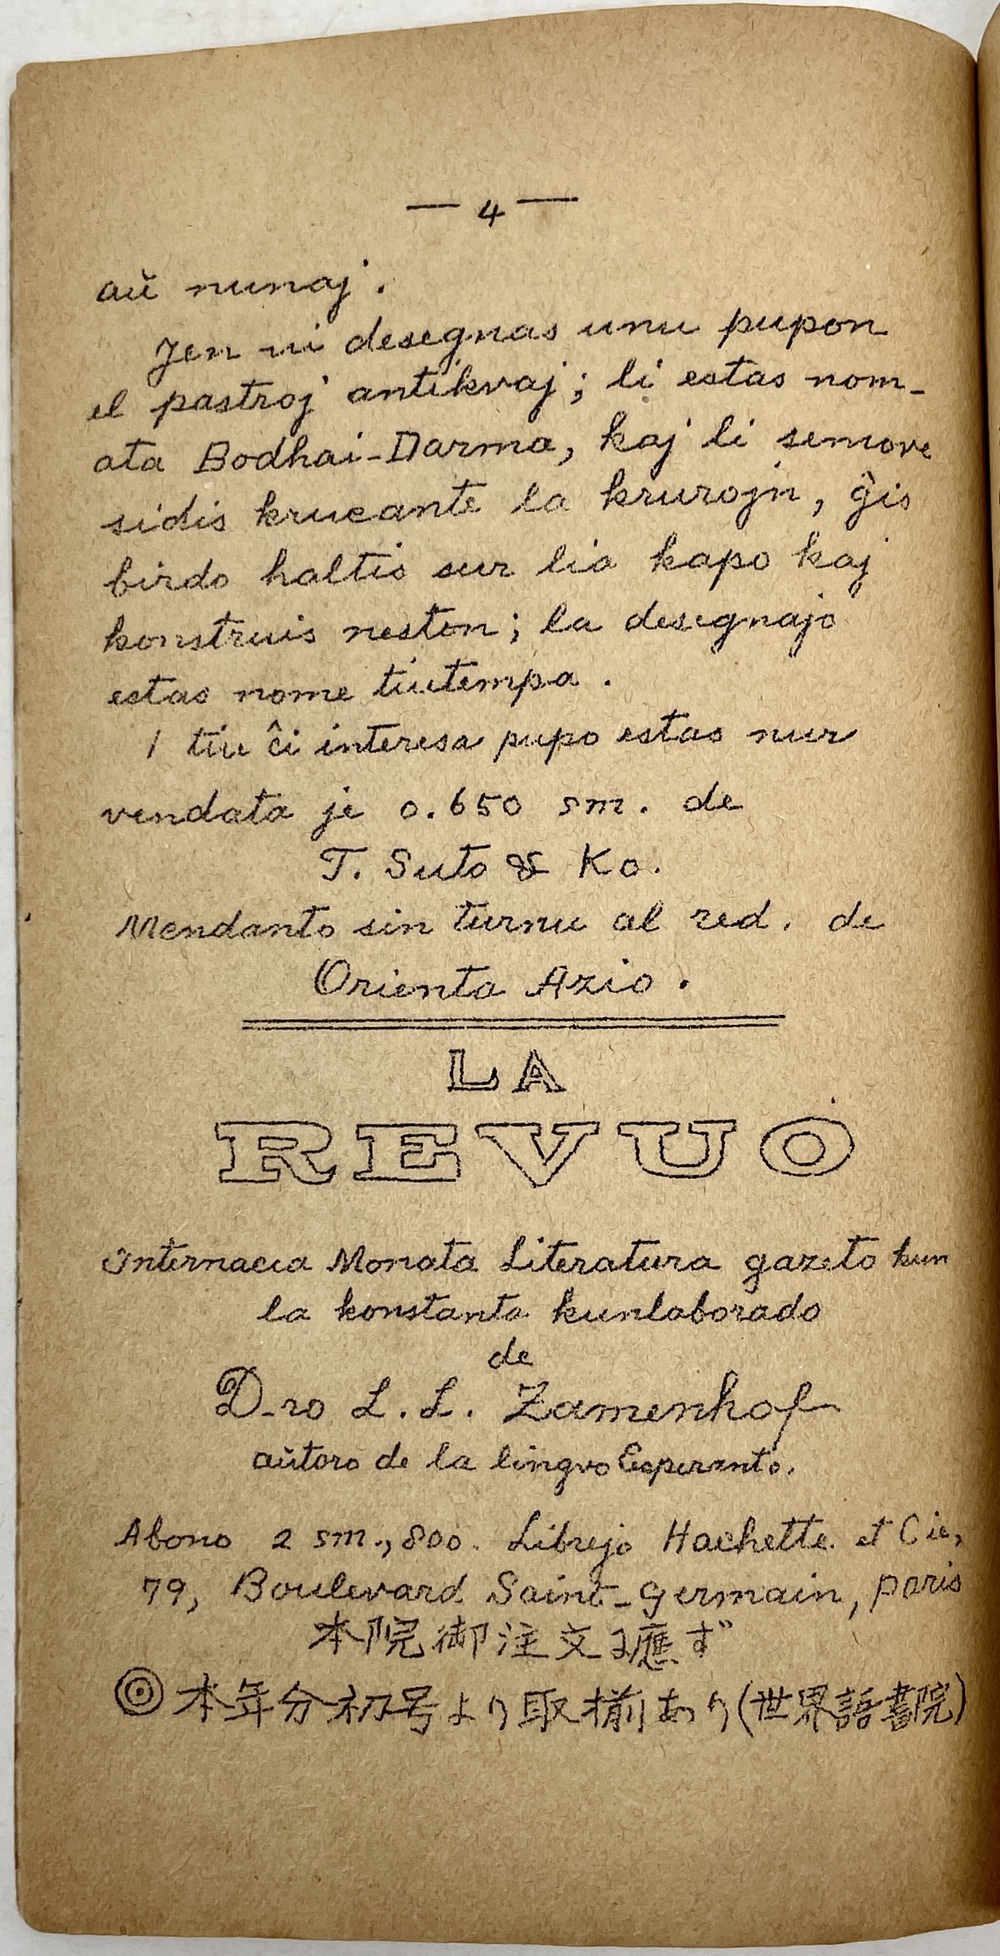 — 4 —
aŭ nunaj.
Jen ni desegnas unu pupon
el pastroj antikvaj; li estas nom-
ata Bodhai-Darma, kaj li senmove
sidis krucante la krurojn, ĝis
birdo haltis sur lia kapo kaj
konstruis neston; la desegnajo
estas nome tiutempa.
1 tiu ĉi interesa pupo estas nur
vendata je 0.650 sm. de
T. Suto & Ko.
Mendanto sin turnu al red. de
Orienta Azio.
LA
REVUO
Internacia Monata Literatura gazeto kun
la konstanta kunlaborado
de
D-ro L. L. Zamenhof
aŭtoro de la lingvo Esperanto.
Abono 2 sm., 800. Librejo Hachette et Cie,
79, Boulevard Saint-Germain, Paris
本院御注文ニ應ず
◎本年分初号より取揃あり(世界語書院)